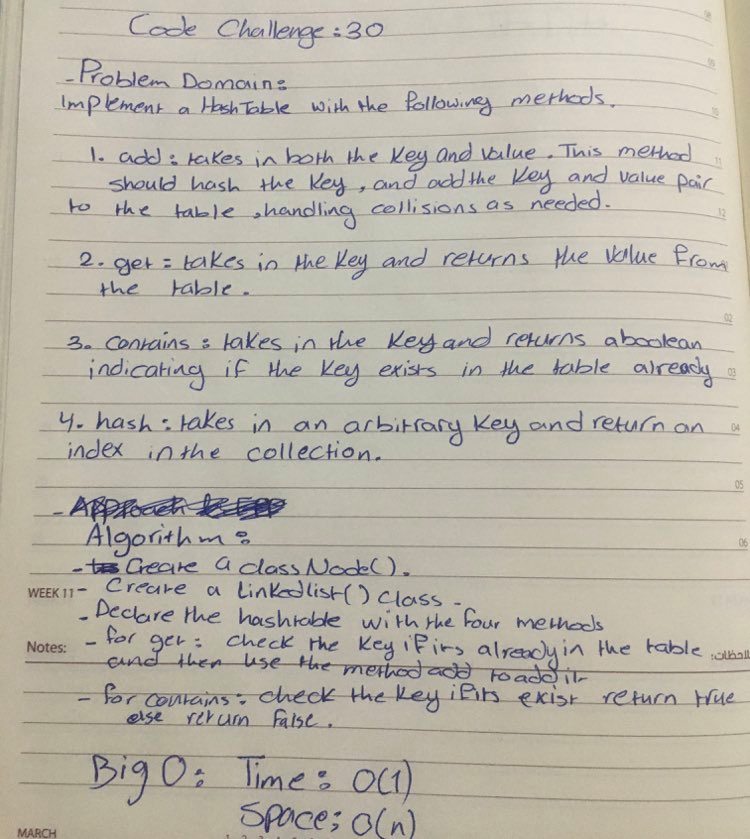 Code Challenge: 30
- Problem Domain:
Implement a HashTable with the following methods.
1. add: takes in both the key and value. This method
should hash the key, and add the key and value pair
to the table, handling collisions as needed.
2. get: takes in the key and returns the value from
the table.
3. Contains: takes in the key and returns a boolean
indicating if the key exists in the table already
4. hash: takes in an arbitrary key and return an
index in the collection.
-
Algorithm:
- Create a class Node().
WEEK 11 - Create a Linkedlist() class -
- Declare the hashtable with the four methods
Notes: - for get: check the key if its already in the table
and then use the method add to add it
- for contains: check the key if its exist return true
else return false.
Big O: Time: O(1)
Space: O(n)
MARCH